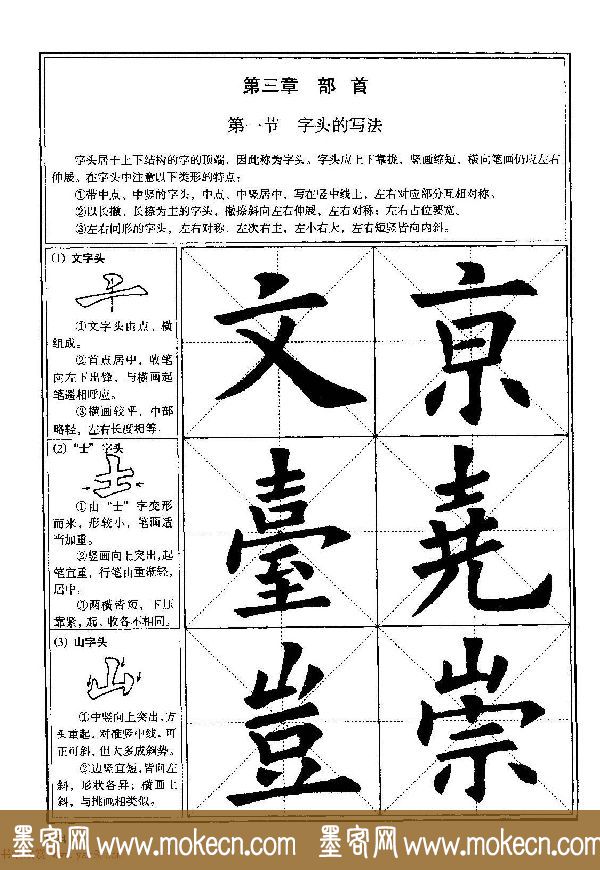 第三章 部首
第一节 字头的写法
字头居于上下结构的字的顶端，因此称为字头。字头应上下靠拢，竖画缩短，横向笔画仍应左右
伸展。在字头中注意以下类形的特点：
①带中点、中竖的字头，中点、中竖居中，写在竖中线上，左右对应部分互相对称。
②以长撇、长捺为主的字头，撇捺斜向左右伸展，左右对称；左右占位要宽。
③左右同形的字头，左右对称，左次右主，左小右大，左右短竖皆向内斜。
(1) 文字头
①文字头由点、横
组成。
②首点居中，收笔
向左下出锋，与横画起
笔遥相呼应。
③横画较平，中部
略轻，左右长度相等。
文 京
(2) “士”字头
①由“士”字变形
而来，形较小，笔画适
当加重。
②竖画向上突出，起
笔宜重，行笔由重渐轻，
居中。
③两横皆短，下压
靠紧，起、收各不相同。
臺 堯
(3) 山字头
①中竖向上突出，方
头重起，对准竖中线，可
正可斜，但大多成斜势。
②边竖宜短，皆向左
斜，形状各异；横画上
斜，与挑画相类似。
豈 崇
墨客网 www.mokecn.com 墨客网 www.mokecn.com